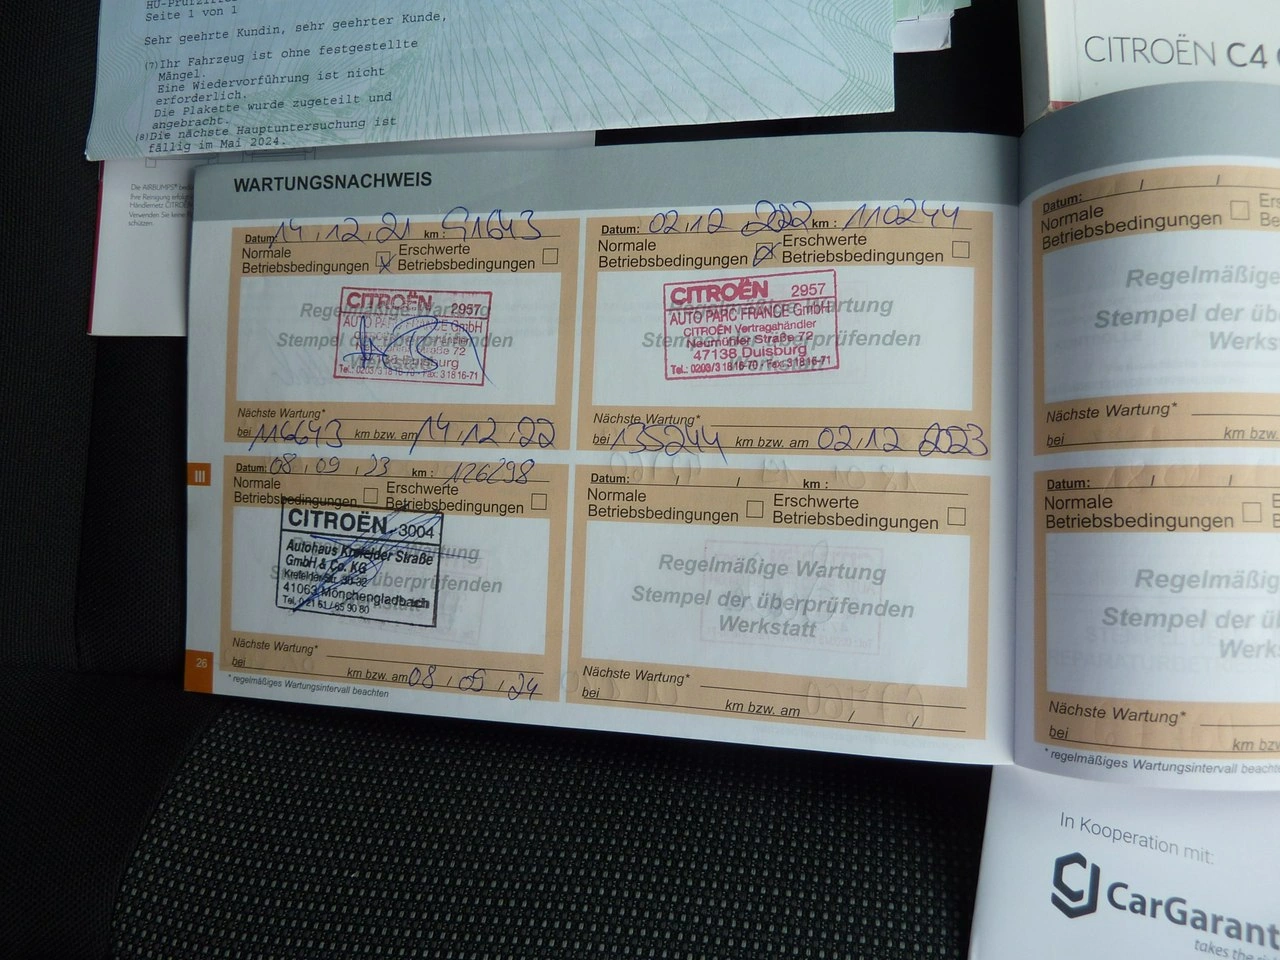 HU-Prüf
Seite 1 von 1
Sehr geehrte Kundin, sehr geehrter Kunde,
(7)Ihr Fahrzeug ist ohne festgestellte
Mängel.
Eine Wiedervorführung ist nicht
erforderlich.
Die Plakette wurde zugeteilt und
angebracht.
(8)Die nächste Hauptuntersuchung ist
fällig im Mai 2024.
CITROËN C4
Die AIRBUMPS®
Ihre Reinigung
Händlernetz
Verwenden Sie keine
schützen.
WARTUNGSNACHWEIS
Datum: 14.12.21 km: 91643
Normale
Betriebsbedingungen
Erschwerte
Betriebsbedingungen
CITROËN 2957
AUTO PARC FRANCE GmbH
Straße 72
Duisburg
Tel.: 0203/3 18 16-70 - Fax: 3 18 16-71
Nächste Wartung*
bei 116643 km bzw. am 14.12.22
Datum: 02.12 2022 km: 110244
Normale
Betriebsbedingungen
Erschwerte
Betriebsbedingungen
CITROËN 2957
AUTO PARC FRANCE GmbH
CITROËN Vertragshändler
Neumühler Straße 72
47138 Duisburg
Tel.: 0203/3 18 16-70 - Fax: 3 18 16-71
Nächste Wartung*
bei 135244 km bzw. am 02.12 2023
III
Datum: 08.09.23 km: 126298
Normale
Betriebsbedingungen
Erschwerte
Betriebsbedingungen
CITROËN 3004
Autohaus Krefelder Straße
GmbH & Co. KG
Krefelder Str. 30-32
41063 Mönchengladbach
Tel. 0 21 61 / 65 90 80
Nächste Wartung*
bei km bzw. am 08.09.24
* regelmäßiges Wartungsintervall beachten
26
Datum: / / km:
Normale
Betriebsbedingungen
Erschwerte
Betriebsbedingungen
Regelmäßige Wartung
Stempel der überprüfenden
Werkstatt
Nächste Wartung*
bei km bzw. am / /
Datum: / /
Normale
Betriebsbedingungen
Regelmäßige
Stempel der
Werkst
Nächste Wartung*
bei km bzw.
Datum: / / /
Normale
Betriebsbedingungen
Regelmäßig
Stempel der
Werks
Nächste Wartung*
bei km bzw
* regelmäßiges Wartungsintervall beachte
In Kooperation mit:
CarGarant
takes the